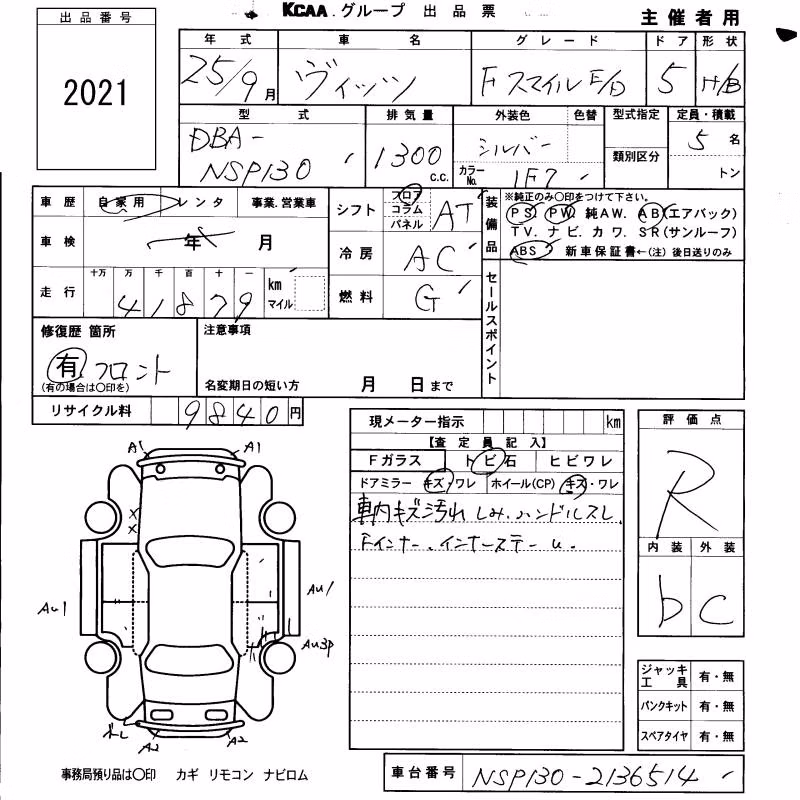 出品番号
KCAA.グループ 出品票
主催者用
2021
年式 車名 グレード ドア 形状
25/9月 ヴィッツ Fスマイル E/D 5 H/B
型式 排気量 外装色 色替 型式指定 定員・積載
DBA-
NSP130 1300 c.c. シルバー 類別区分 5名
カラーNo. 1F7 トン
車歴 自家用 レンタ 事業.営業車
シフト フロア コラム パネル AT
装備品 ※純正のみ○印をつけて下さい。
PS. PW. 純AW. AB(エアバック)
TV. ナビ. カワ. SR(サンルーフ)
ABS 新車保証書←(注)後日送りのみ
車検 年 月
冷房 AC
走行 十万 万 千 百 十 一
41879 km マイル
燃料 G
セールスポイント
修復歴 箇所
有 フロント
(有の場合は○印を)
注意事項
名変期日の短い方 月 日まで
リサイクル料 9840円
現メーター指示 km
【査定員記入】
Fガラス トビ石 ヒビワレ
ドアミラー キズ・ワレ ホイール(CP) キズ・ワレ
車内キズ汚れ しみ.ハンドルスレ
Fインナー.インナーステーu.
評価点
R
内装 外装
b C
A1 A1
AU1 AU1
AU3P
A2 A2
ジャッキ工具 有・無
パンクキット 有・無
スペアタイヤ 有・無
事務局預り品は○印 カギ リモコン ナビロム
車台番号 NSP130-2136514